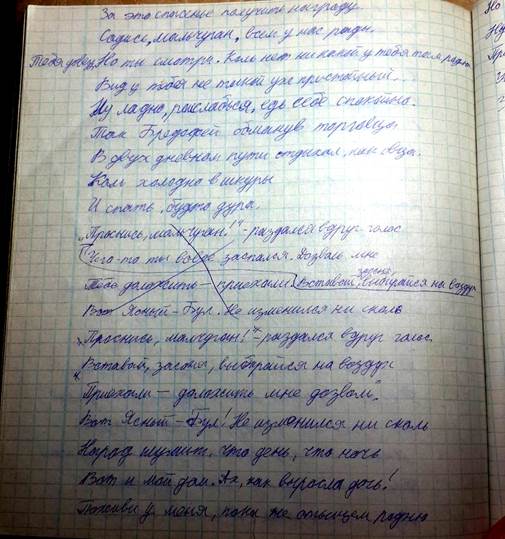 За это спасение получить награду
Садись, мальчуган, всем у нас рады.
Тебя довезу Но ты смотри. Коль нет никакой у тебя там родни
Вид у тебя не такой уж простывший...
Ну ладно, расслабься, едь себе спокойно.
Так Бредофей обманув торговца
В двух дневном пути отдыхал, как овца.
Коль холодно в шкуры
И спать, будто дура
"Проснись, мальчуган!" - раздался вдруг голос
Чего-то ты вовсе заспался. Дозволь мне
Тебе доложить - приехали. Вставай, засоня, выбирайся на воздух
Вот Ясный - Бул. Не изменился ни сколь
"Проснись, мальчуган!" - раздался вдруг голос.
Вставай, засоня, выбирайся на воздух
"Приехали - доложить мне дозволь".
Вот Ясный - Бул! Не изменился ни сколь
Народ шумит. Что день, что ночь
Вот и мой дом. Ах, как выросла дочь!
Поживи у меня, пока не отыщем родню